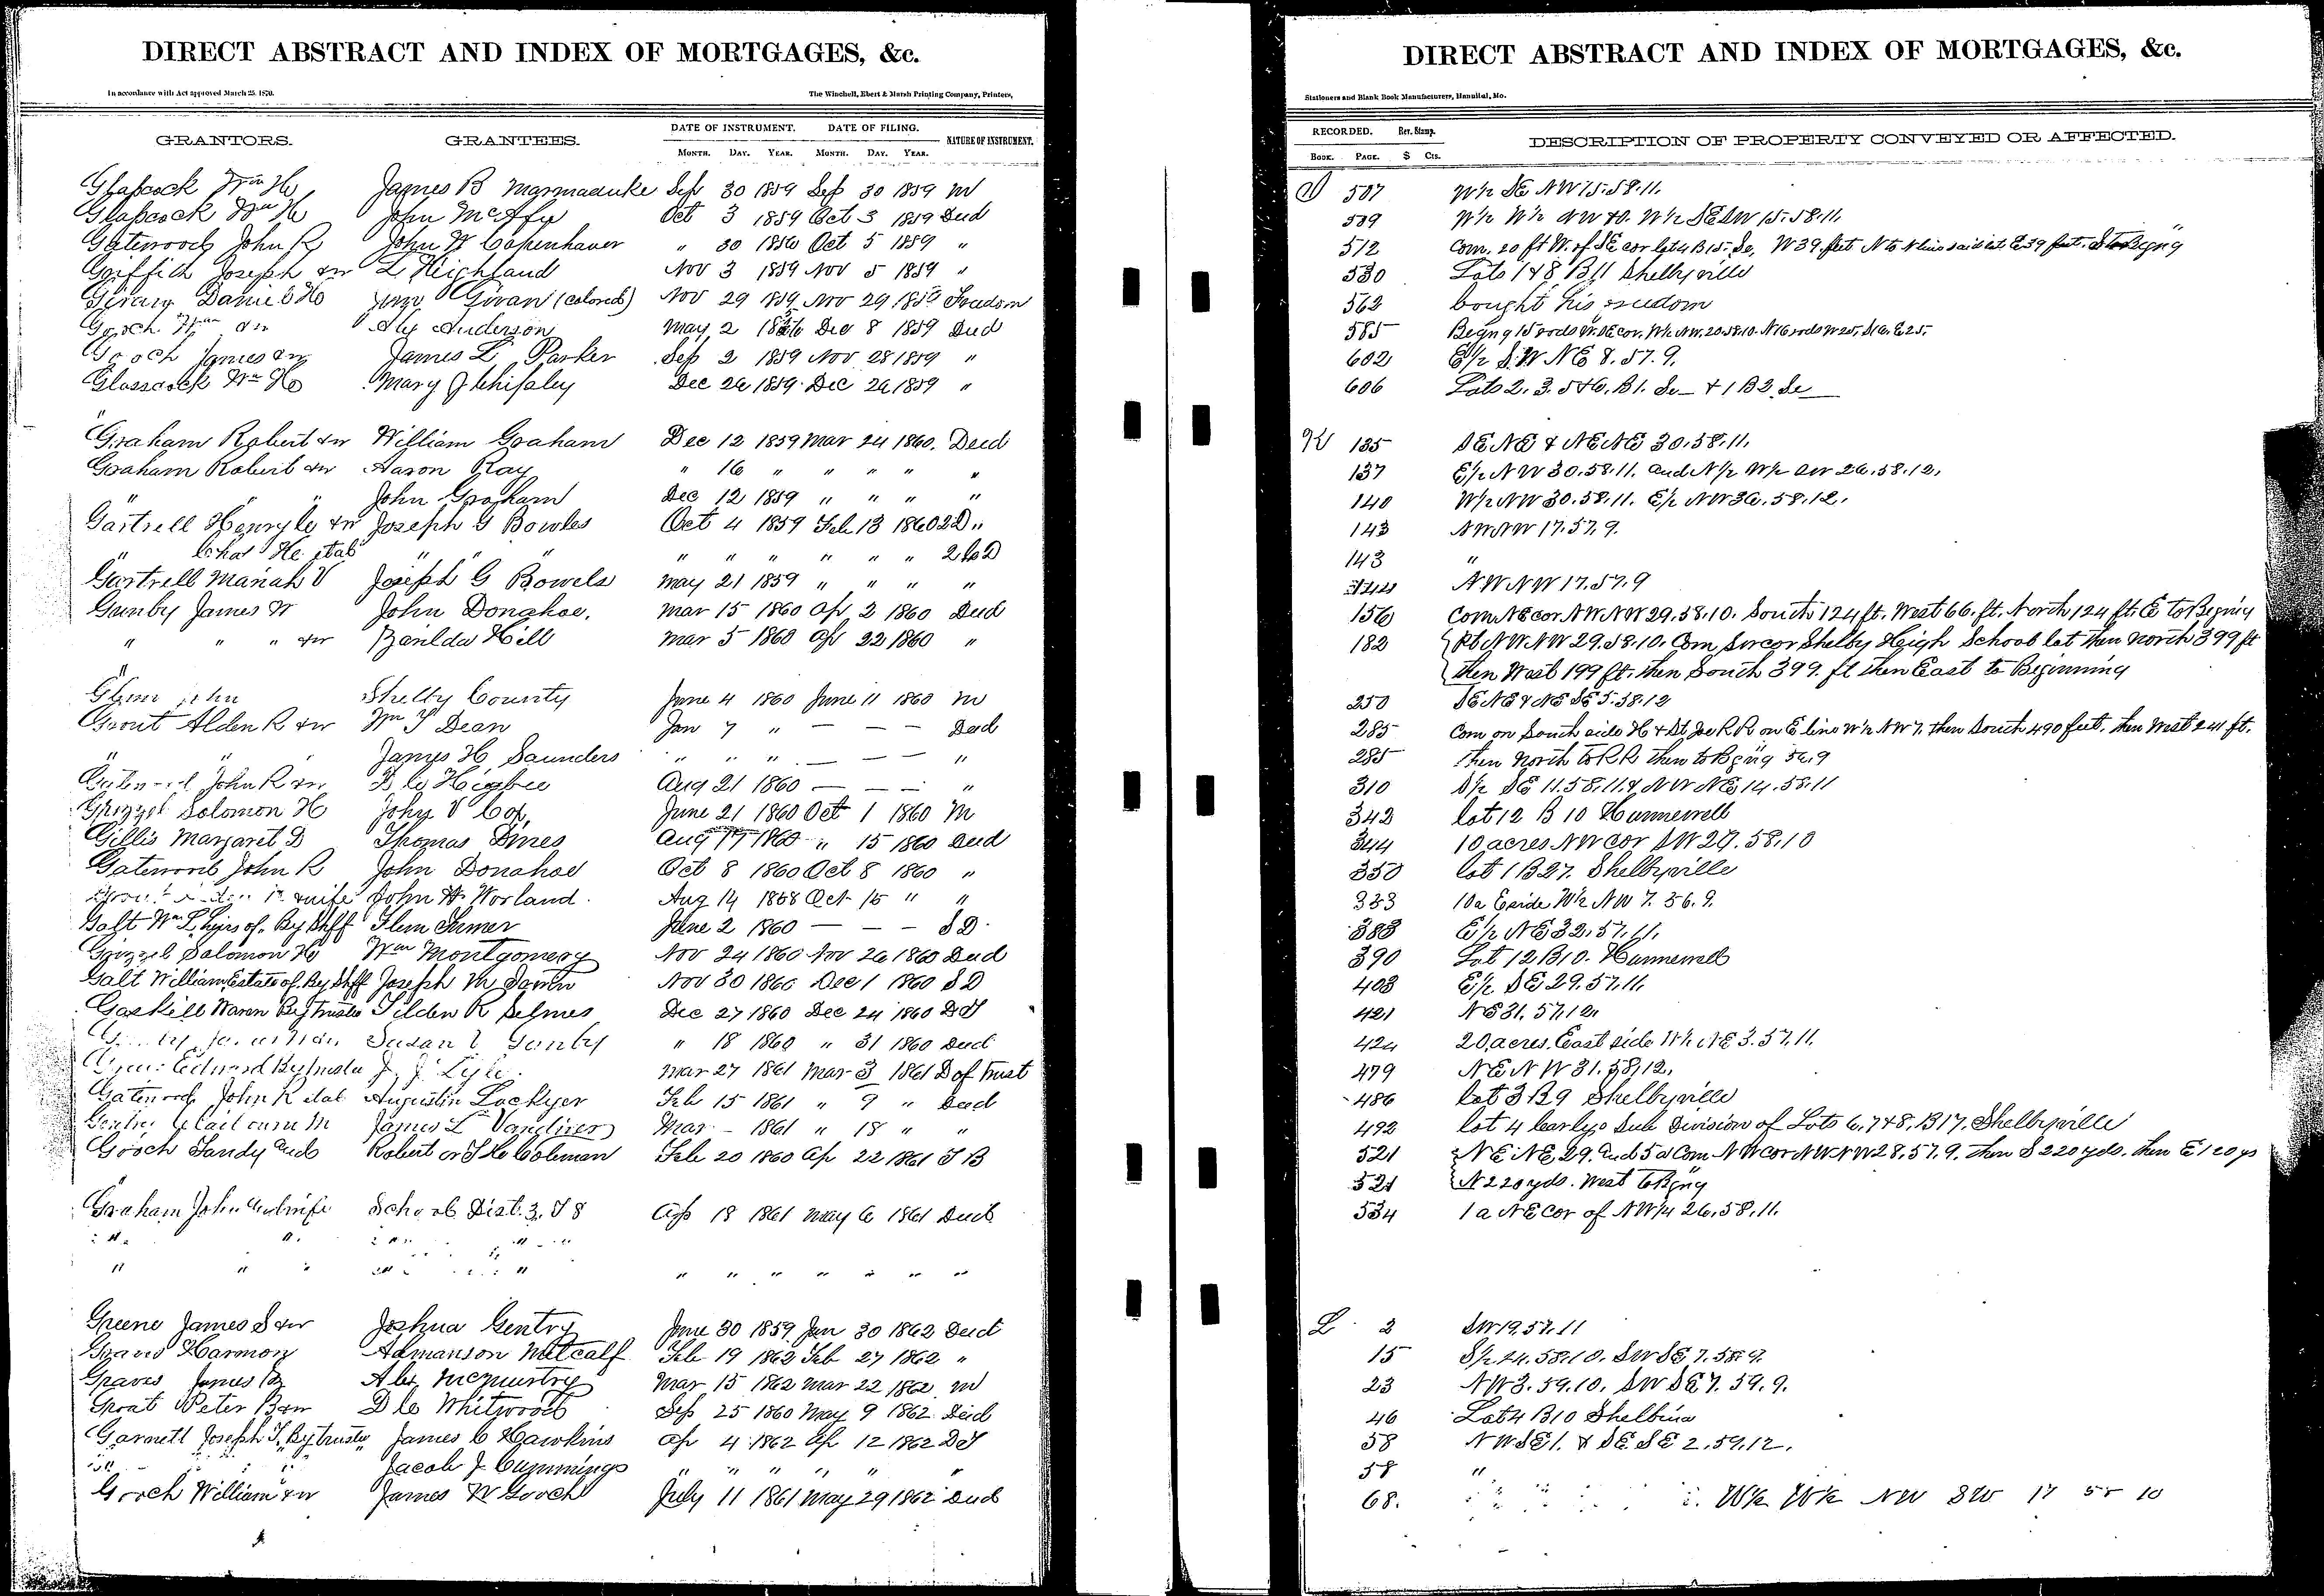 DIRECT ABSTRACT AND INDEX OF MORTGAGES, &c.
In accordance with Act approved March 25, 1870. The Winchell, Ebert & Marsh Printing Company, Printers,
GRANTORS. GRANTEES. DATE OF INSTRUMENT. DATE OF FILING. NATURE OF INSTRUMENT.
MONTH. DAY. YEAR. MONTH. DAY. YEAR.
Glascock Wm H James B Marmaduke Sep 30 1859 Sep 30 1859 M
Glascock Wm H John McAfy Oct 3 1859 Oct 3 1859 Deed
Gatewood John R John W Copenhaver " 30 Oct 5 1859 "
Griffith Joseph & w L Highland Nov 3 1859 Nov 5 1859 "
Daniel H Givan (colored) Nov 29 1859 Nov 29 1859 Freedom
Gooch Wm & w Alex Anderson May 2 Dec 8 1859 Deed
Gooch James & w James L Parker Sep 2 1859 Nov 28 1859 "
Glasscock Wm H Mary J Dec 26 1859 Dec 26 1859 "
Graham Robert & w William Graham Dec 12 1859 Mar 24 1860. Deed
Graham Robert & w Aaron Ray " 16 " " " " "
" " John Graham Dec 12 1859 " " " "
Gartrell Henry C & w Joseph G Bowles Oct 4 1859 Feb 13 1860 "
" Chas H et al " " " " " " " " "
Gartrell Mariah V Joseph G Bowels May 21 1859 " " " "
Gunby James W John Donahoe. Mar 15 1860 Ap 2 1860 Deed
" " " & w Barilda Hill Mar 5 1860 Ap 22 1860 "
Glenn John Shelby County June 4 1860 June 11 1860 M
Grout Alden R & w Wm T Dean Jan 7 " — — — Deed
" " James H Saunders " " " — — — "
John R & w D C Higbee Aug 21 1860 — — — "
Grizzel Solomon H John V Cox June 21 1860 Oct 1 1860 M
Gillis Margaret D Thomas Dines Aug 1860 " 15 1860 Deed
Gatewood John R John Donahoe Oct 8 1860 Oct 8 1860 "
wife John W. Worland. Aug 14 1858 Oct 15 " "
Galt Wm L heirs of. By Shff Flem Turner June 2 1860 — — — S D.
Grizzel Solomon H Wm Montgomery Nov 24 1860 Nov 26 1860 Deed
Galt William Estate of. By Shff Joseph M Nov 30 1860 Dec 1 1860 S D
Gaskill Waren By trustee Tilden R Selmes Dec 27 1860 Dec 24 1860 D T
Susan Gunby " 18 1860 " 31 1860 Deed
Edward By trustee J. J. Lyle. Mar 27 1861 Mar 3 1861 D of Trust
Gatewood John R et al Augustin Lockyer Feb 15 1861 " 9 " Deed
James L Vandiver Mar — 1861 " 18 " "
Gooch Sandy Robert or Coleman Feb 20 1860 Ap 22 1861 T B
Graham John and wife School Dist. 3. T 8 Ap 18 1861 May 6 1861 Deed
" " " " " " " " " "
Greene James S & w Joshua Gentry June 30 1859 Jan 30 1862 Deed
Harmon Admanson Metcalf Feb 19 1862 Feb 27 1862 "
Graves James Alex McMurtry Mar 15 1862 Mar 22 1862 M
Peter B & w D C Whitwood Sep 25 1860 May 9 1862 Deed
Garnett Joseph T. By trustee James C Hawkins Ap 4 1862 Ap 12 1862 D T
Jacob J Cummings " " " " " "
Gooch William & w James W Gooch July 11 1861 May 29 1862 Deed
DIRECT ABSTRACT AND INDEX OF MORTGAGES, &c.
Stationers and Blank Book Manufacturers, Hannibal, Mo.
RECORDED. Rev. Stamp. DESCRIPTION OF PROPERTY CONVEYED OR AFFECTED.
BOOK. PAGE. $ Cts.
507 W½ SE NW 15.58.11.
509 W½ W½ NW 40. W½ SE SW 15.58.11.
512 Com. 20 ft W. of SE cor lot 4 B 15. W 39 feet N to line said lot E 39 feet. S to Begng
530 Lots 1 & 8 B 11 Shelbyville
562 bought his freedom
585 Begng 15 rods W. SE cor. W½ NW. 20.58.10. N 16 rods W 25. S 16. E 25.
602 E½ S.W NE 8.57.9.
606 Lots 2. 3. 5 & 6. B 1. & 1 B 2.
K 135 SE NE & NE NE 30.58.11.
137 E½ NW 30.58.11. and N½ W½ 26.58.12.
140 W½ NW 30.58.11. E½ NW 36.58.12.
143 NW NW 17.57.9.
143 "
144 NW NW 17.57.9
156 Com NE cor NW NW 29.58.10. South 124 ft. West 66. ft. North 124 ft. E to Begning
182 Pt NW NW 29.58.10. Com cor Shelby High School lot then North 399 ft
then West 199 ft. then South 399. ft then East to Beginning
250 SE NE & NE SE 5.58.12
285 Com on South side H & St Joe R R on E line W½ NW 7. then South 490 feet. then West 241 ft.
285 then North to RR then to Begng 56.9
310 S½ SE 11.58.11 & NW NE 14.58.11
342 lot 12 B 10 Hunnewell
344 10 acres NW cor SW 29.58.10
350 lot 1 B 27. Shelbyville
383 10a E side W½ NW 7. 56.9.
388 E½ NE 32.57.11.
390 Lot 12 B 10. Hunnewell
408 E½ SE 29.57.11.
421 NE 31.57.12.
424 20 acres. East side W½ NE 3.57.11.
479 NE NW 31.58.12.
486 lot 3 B 9 Shelbyville
492 lot 4 Sub Division of Lots 6, 7 & 8, B 17. Shelbyville
521 NE NE 29. and 5a Com NW cor NW NW 28.57.9. then S 220 yds. then E 120 ys
521 N 220 yds. West to Begng
534 1 a NE cor of NW¼ 26.58.11.
L 2 SW 19.57.11
15 S½ 24.58.10. SW SE 7.58.9.
23 NW 3.59.10. SW SE 7.59.9.
46 Lot 4 B 10 Shelbina
58 NW SE 1. & SE SE 2.59.12.
58 "
68. W½ W½ NW SW 17 58 10